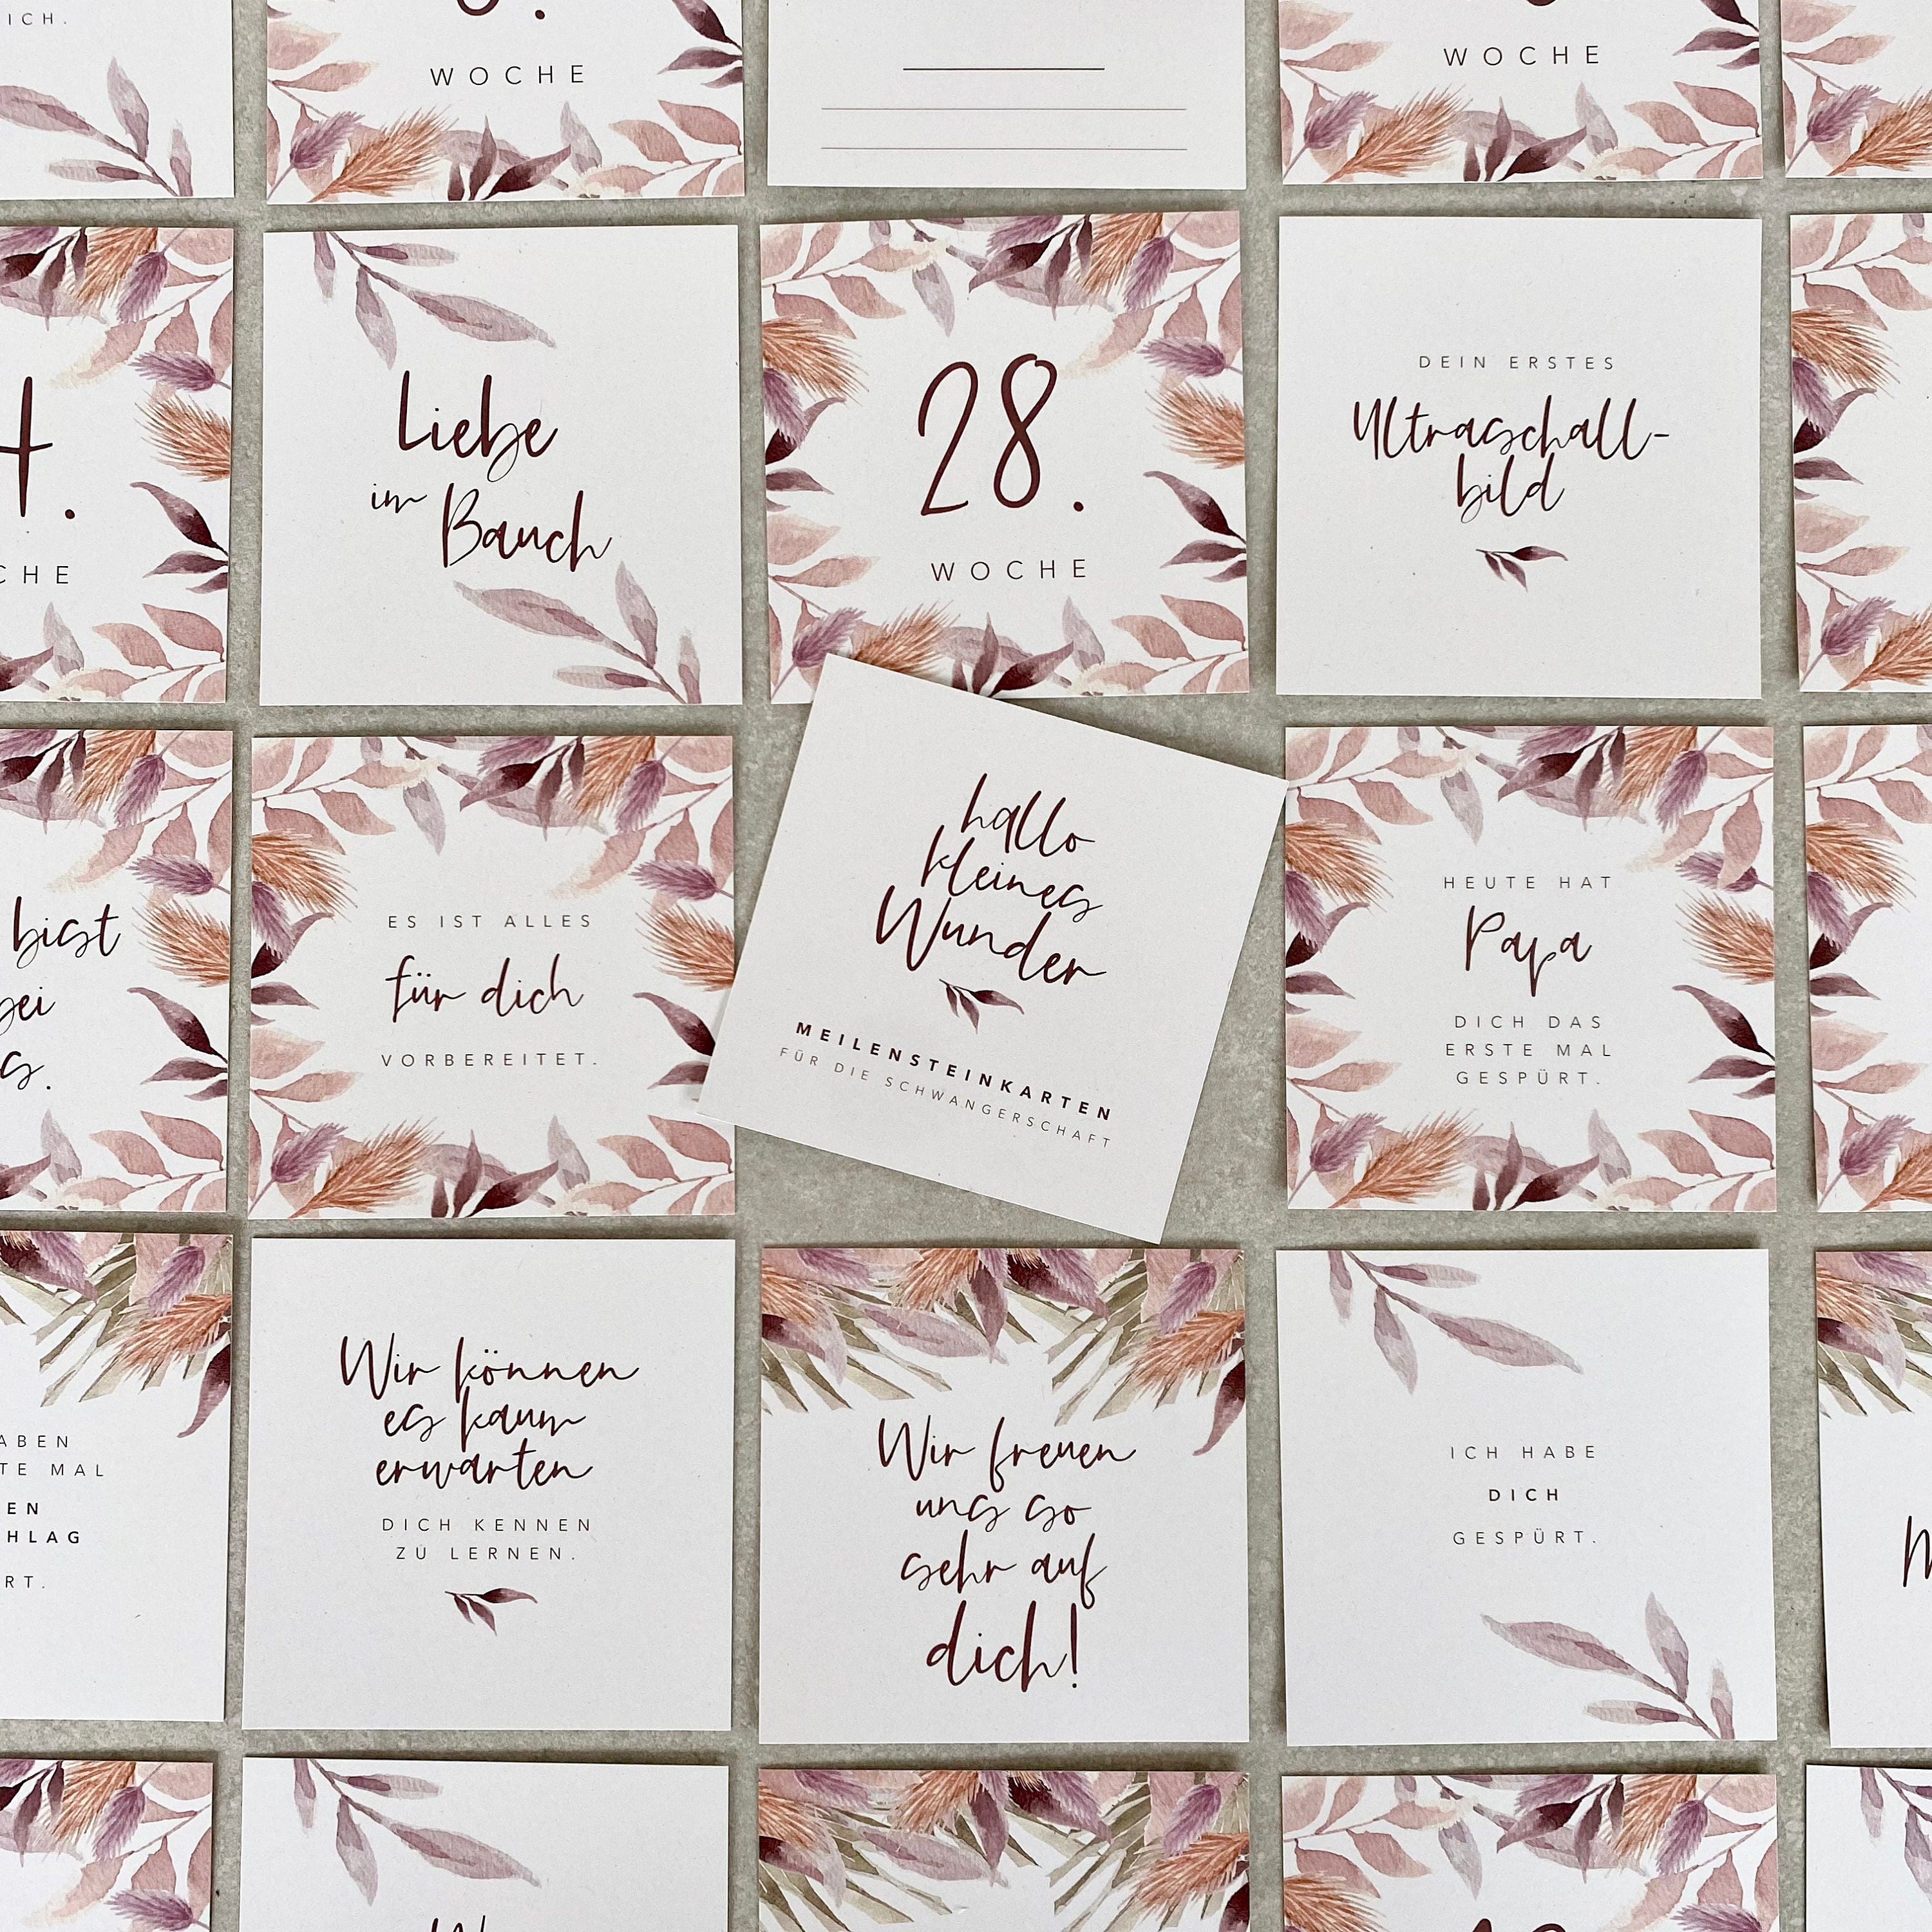 ICH.
WOCHE
WOCHE
4.
Liebe
im Bauch
28.
WOCHE
DEIN ERSTES
Ultraschall-
bild
bist
ES IST ALLES
für dich
VORBEREITET.
hallo
kleines
Wunder
MEILENSTEINKARTEN
FÜR DIE SCHWANGERSCHAFT
HEUTE HAT
Papa
DICH DAS
ERSTE MAL
GESPÜRT.
MAL
Wir können
es kaum
erwarten
DICH KENNEN
ZU LERNEN.
Wir freuen
uns so
sehr auf
dich!
ICH HABE
DICH
GESPÜRT.